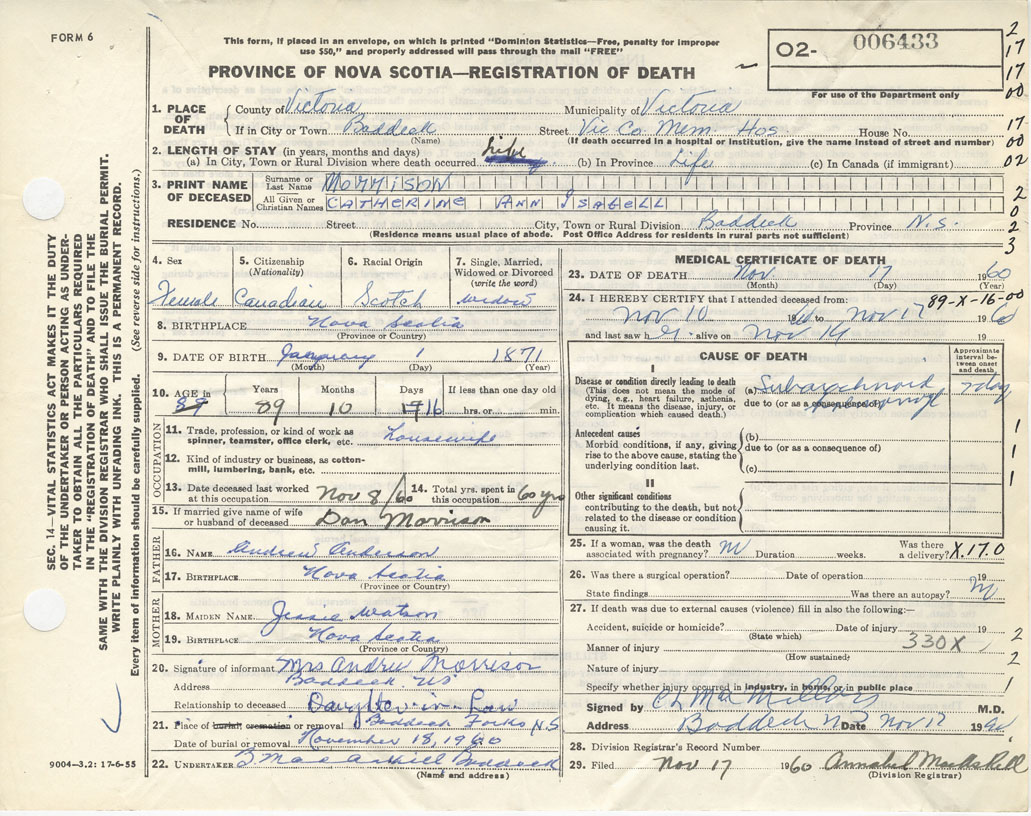 FORM 6
This form, if placed in an envelope, on which is printed "Dominion Statistics—Free, penalty for improper
use $50," and properly addressed will pass through the mail "FREE"
PROVINCE OF NOVA SCOTIA—REGISTRATION OF DEATH
02- 006433
For use of the Department only
2
17
17
00
17
00
02
2
0
2
3
1. PLACE OF DEATH
County of Victoria Municipality of Victoria
If in City or Town Baddeck Street Vic Co. Mem. Hos. House No.
(Name) (If death occurred in a hospital or Institution, give the name instead of street and number)
2. LENGTH OF STAY (in years, months and days)
(a) In City, Town or Rural Division where death occurred Life (b) In Province Life (c) In Canada (if immigrant)
3. PRINT NAME OF DECEASED
Surname or Last Name MORRISON
All Given or Christian Names CATHERINE ANN ISABELL
RESIDENCE No. Street City, Town or Rural Division Baddeck Province N.S.
(Residence means usual place of abode. Post Office Address for residents in rural parts not sufficient)
4. Sex 5. Citizenship (Nationality) 6. Racial Origin 7. Single, Married, Widowed or Divorced (write the word)
Female Canadian Scotch widow
8. BIRTHPLACE Nova Scotia
(Province or Country)
9. DATE OF BIRTH January 1 1871
(Month) (Day) (Year)
10. AGE in Years Months Days If less than one day old
89 89 10 16 hrs. or min.
OCCUPATION
11. Trade, profession, or kind of work as spinner, teamster, office clerk, etc. Housewife
12. Kind of industry or business, as cotton-mill, lumbering, bank, etc.
13. Date deceased last worked at this occupation Nov 8/60 14. Total yrs. spent in this occupation 60 yrs
15. If married give name of wife or husband of deceased Dan Morrison
FATHER
16. NAME Andrew Anderson
17. BIRTHPLACE Nova Scotia
(Province or Country)
MOTHER
18. MAIDEN NAME Jessie Watson
19. BIRTHPLACE Nova Scotia
(Province or Country)
20. Signature of informant Mrs Andrew Morrison
Address Baddeck NS
Relationship to deceased Daughter-in-Law
21. Place of burial cremation or removal Baddeck Forks N.S
Date of burial or removal November 18, 1960
22. UNDERTAKER Baddeck
(Name and address)
MEDICAL CERTIFICATE OF DEATH
23. DATE OF DEATH Nov. 17 1960
(Month) (Day) (Year)
24. I HEREBY CERTIFY that I attended deceased from: 89-X-16-00
Nov 10 19 to Nov 17 1960
and last saw h alive on Nov 19
CAUSE OF DEATH
Approximate interval between onset and death
I
Disease or condition directly leading to death
(This does not mean the mode of dying, e.g., heart failure, asthenia, etc. It means the disease, injury, or complication which caused death.)
(a) Subarachnoid 7 day
due to (or as a consequence of)
Antecedent causes
Morbid conditions, if any, giving rise to the above cause, stating the underlying condition last.
(b)
due to (or as a consequence of)
(c)
1
1
1
II
Other significant conditions
contributing to the death, but not related to the disease or condition causing it.
25. If a woman, was the death associated with pregnancy? Duration weeks. Was there a delivery? X.17.0
26. Was there a surgical operation? Date of operation 19
State findings Was there an autopsy?
27. If death was due to external causes (violence) fill in also the following:—
Accident, suicide or homicide? Date of injury 19
(State which)
Manner of injury 330X
(How sustained)
Nature of injury
2
2
1
Specify whether injury occurred in industry, in home, or in public place
Signed by M.D.
Address Baddeck NS Date Nov 17 19
28. Division Registrar's Record Number
29. Filed Nov 17 1960 Annabel MacAskill
(Division Registrar)
SEC. 14—VITAL STATISTICS ACT MAKES IT THE DUTY
OF THE UNDERTAKER OR PERSON ACTING AS UNDER-
TAKER TO OBTAIN ALL THE PARTICULARS REQUIRED
IN THE "REGISTRATION OF DEATH" AND TO FILE THE
SAME WITH THE DIVISION REGISTRAR WHO SHALL ISSUE THE BURIAL PERMIT.
WRITE PLAINLY WITH UNFADING INK. THIS IS A PERMANENT RECORD.
Every item of information should be carefully supplied. (See reverse side for instructions.)
9004—3.2: 17-6-55